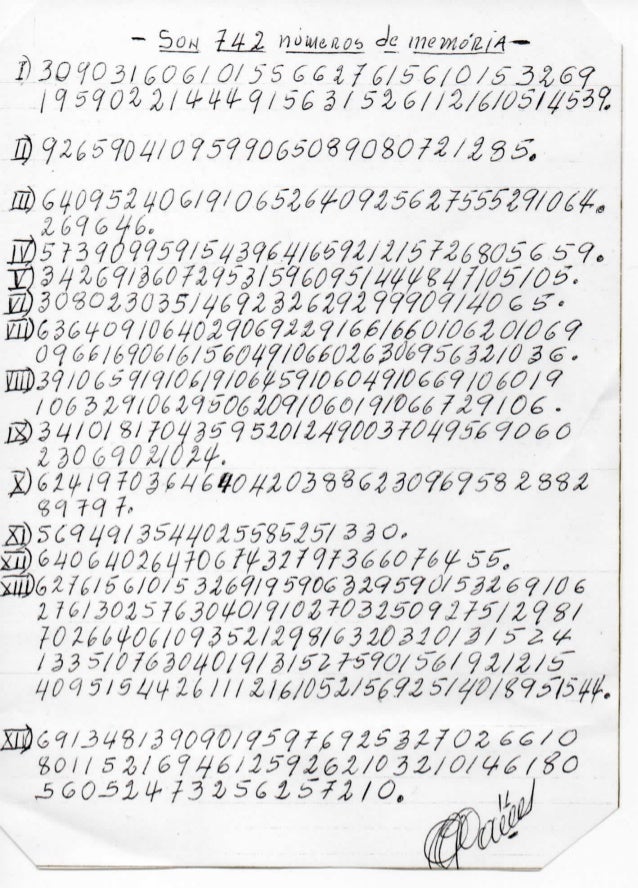 - Son 742 números de memória -
I) 309031606101556627615610153269
195902214449156315261121610514539.
II) 9265904109599065089080721285.
III) 6409524061910652640925627555291064.
269646.
IV) 5739099591543964165921215726805659.
V) 3426913607295315960951444847105105.
VI) 308023035146923262929990914065.
VII) 63640910640290692291661660106201069
096616906161560491066026306956321036.
VIII) 3910659191061910645910604910669106019
10632910629506209106019106672 9106.
IX) 341018170435952012490037049569060
23069021024.
X) 62419703646404203886230969582882
89797.
XI) 5694913544025585251330.
XII) 6406402647067432797366076455.
XIII) 627615610153269195906329590153269106
2761302576304019102703250927512981
7026640610935212981632032013 1524
133510763040191315275901561921215
409515442611121610521569251401895 1544.
XIV) 691348139090195976925327026610
80115216946125926210321014 6180
56052473256257210.